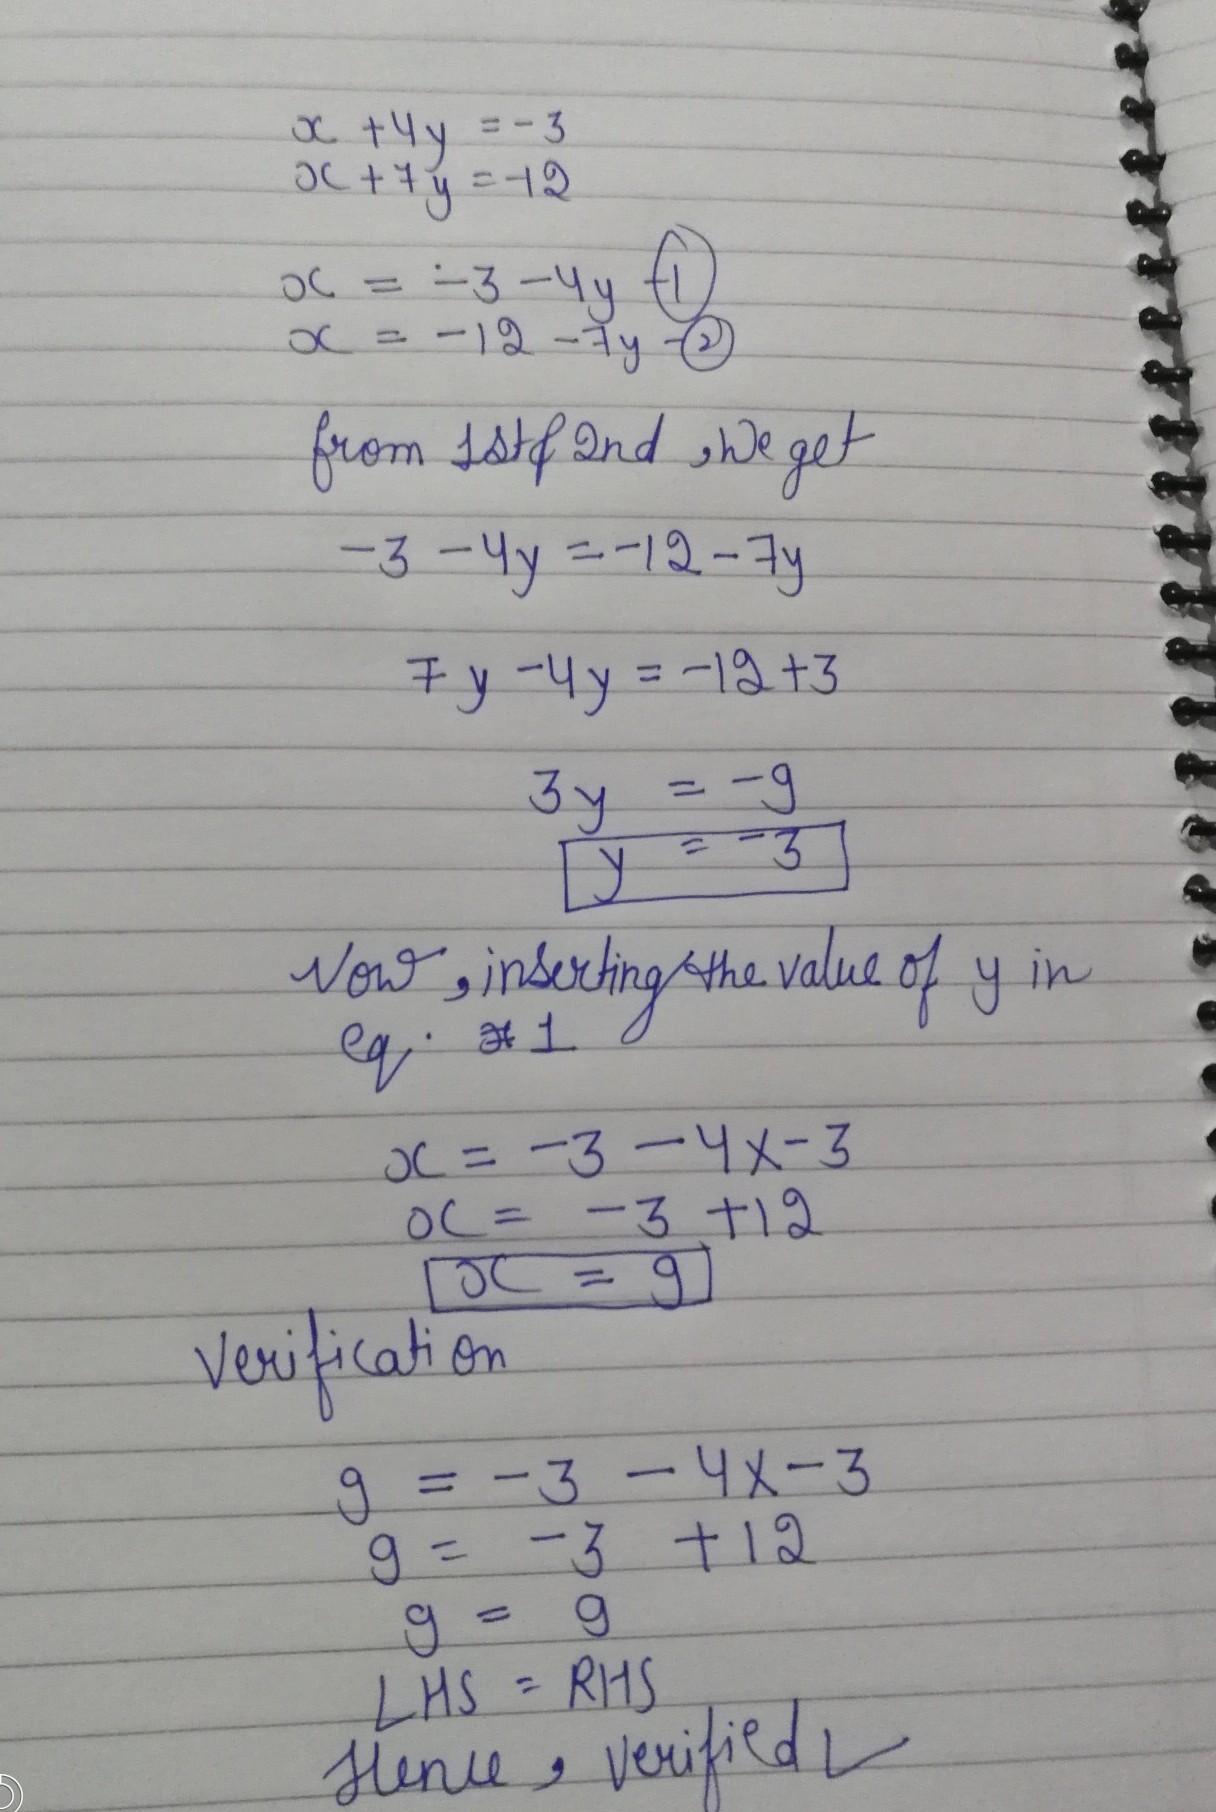 x + 4y = -3
x + 7y = -12
x = -3 - 4y -①
x = -12 - 7y -②
from 1st & 2nd, We get
-3 - 4y = -12 - 7y
7y - 4y = -12 + 3
3y = -9
y = -3
Now, inserting the value of y in
eq. 1
x = -3 - 4x-3
x = -3 + 12
x = 9
Verification
9 = -3 - 4x-3
9 = -3 + 12
9 = 9
LHS = RHS
Hence, verified